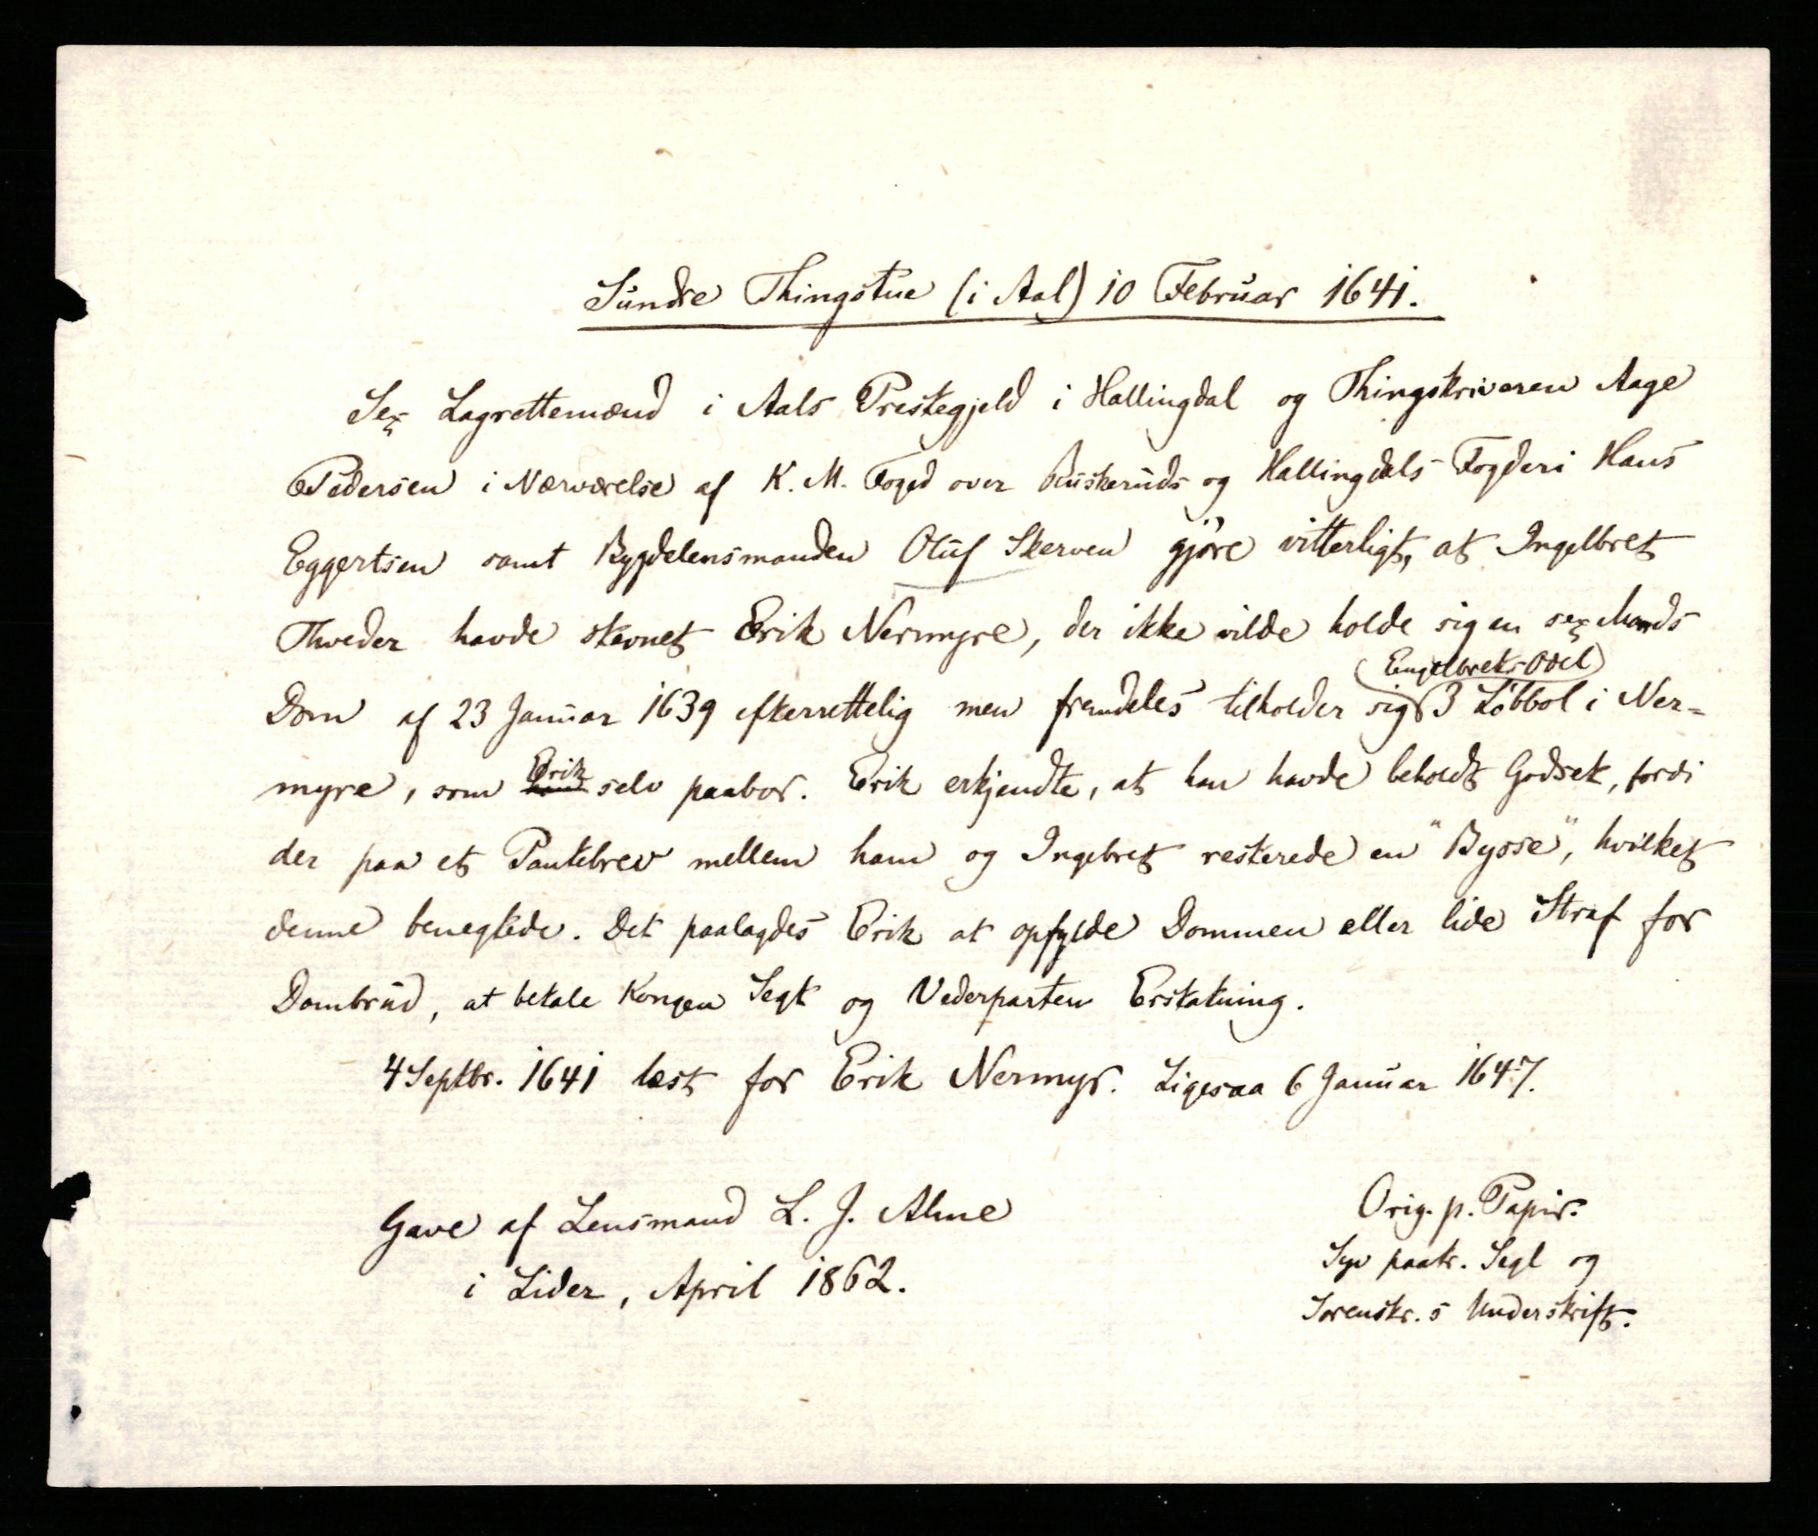 Sundre Thingstue (i Aal) 10 Februar 1641.
Sex Lagrettemænd i Aals Prestegjeld i Hallingdal og Thingskriveren Aage
Pedersen i Nærværelse af K. M. Foged over Buskeruds og Hallingdals Fogderi Hans
Eggertsen samt Bygdelensmanden Oluf Skerven gjøre vitterligt, at Ingelbret
Thveder havde stevnet Erik Nermyre, der ikke vilde holde sig en sex Mands
Engelbrets Odel
Dom af 23 Januar 1639 efterrettelig men fremdeles tilholder sig 3 Løbbol i Ner=
Erik
myre, som ham selv paabor. Erik erkjendte, at han havde beholdt Godset, fordi
der paa et Pantebrev mellem ham og Ingebret resterede en "Bysse", hvilket
denne benegtede. Det paalagdes Erik at opfylde Dommen eller lide Straf for
Dombrud, at betale Kongen Segt og Vederparten Erstatning.
4 Septbr. 1641 læst for Erik Nermyr. Ligesaa 6 Januar 1647.
Gave af Lensmand L. J. Alme
i Lider, April 1862.
Orig. p. Papir.
Syv paatr. Segl og
Sorenskr.s Underskrift.